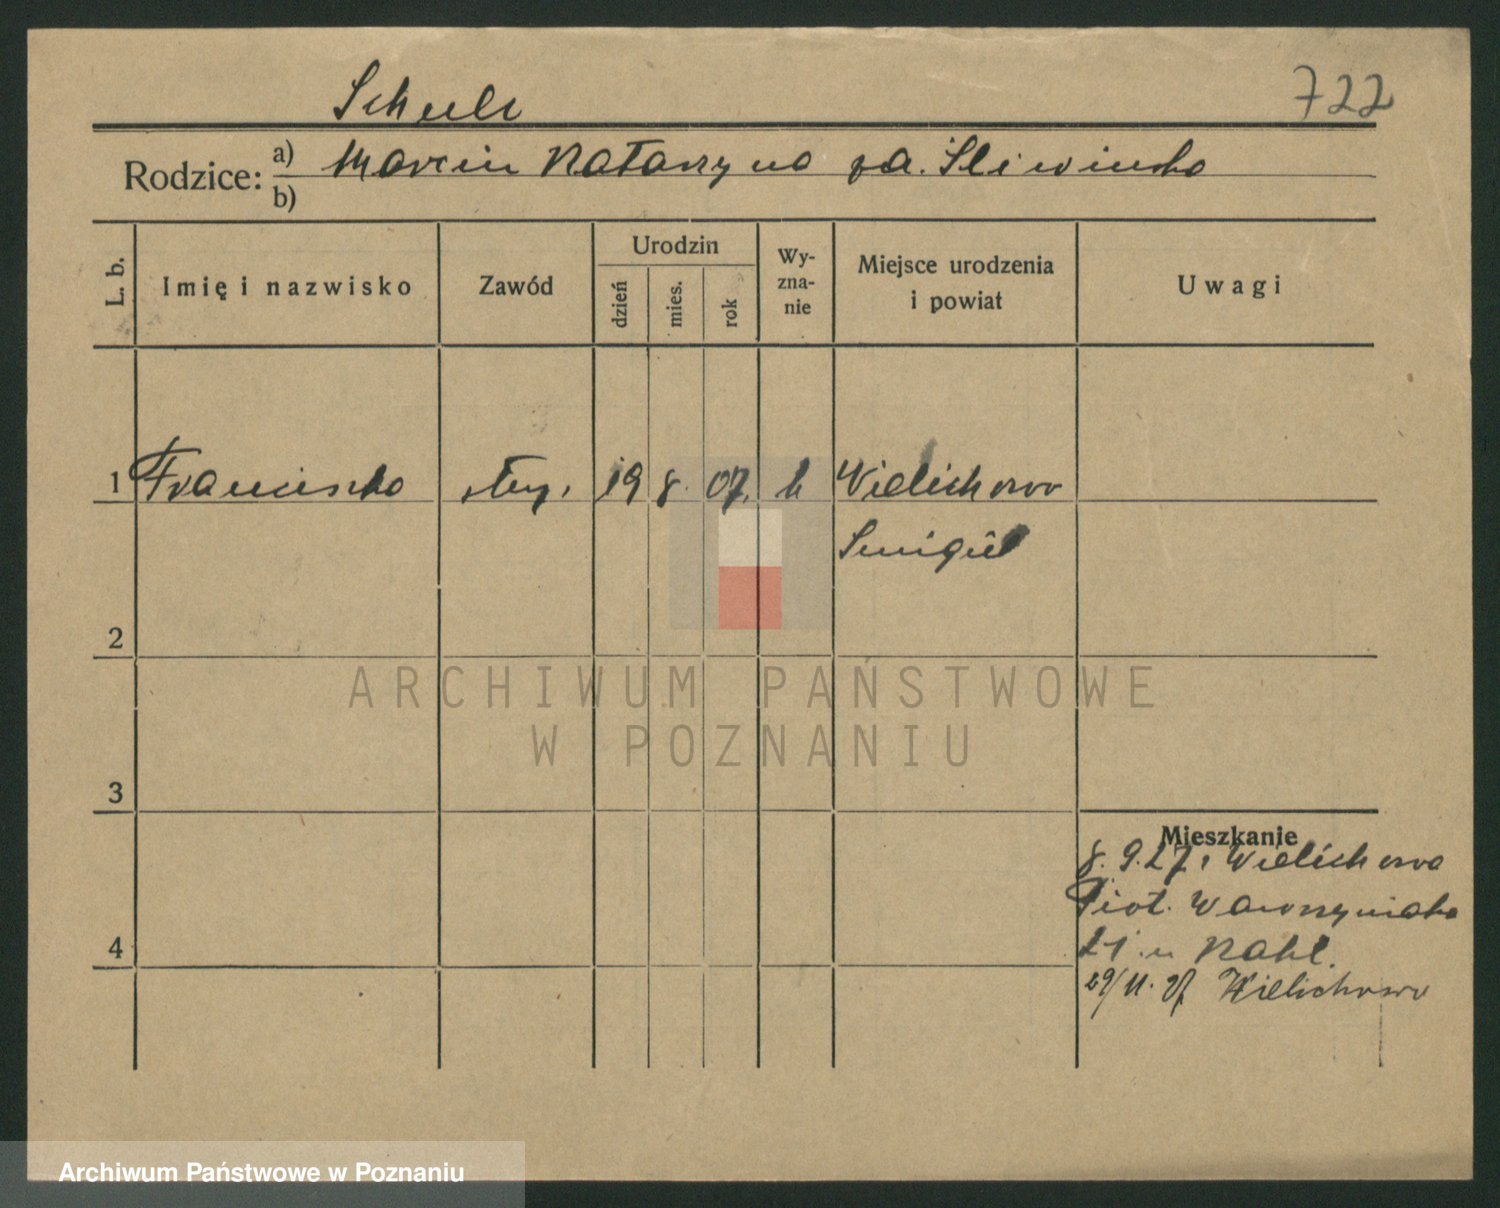 722
Schulz
Rodzice: a) Marcin Katarzyna za. Sliwinska
b)
L. b.
Imię i nazwisko
Zawód
Urodzin
dzień
mies.
rok
Wy-
zna-
nie
Miejsce urodzenia
i powiat
Uwagi
1 Franciszka służ. 19 8. 07. k Wielichowo
Smigiel
2
ARCHIWUM PAŃSTWOWE
W POZNANIU
3
Mieszkanie
8. 9. 27. Wielichowa
Piot. Wawrzyniaka
21 u
4
29/11. 27 Wielichowo
Archiwum Państwowe w Poznaniu